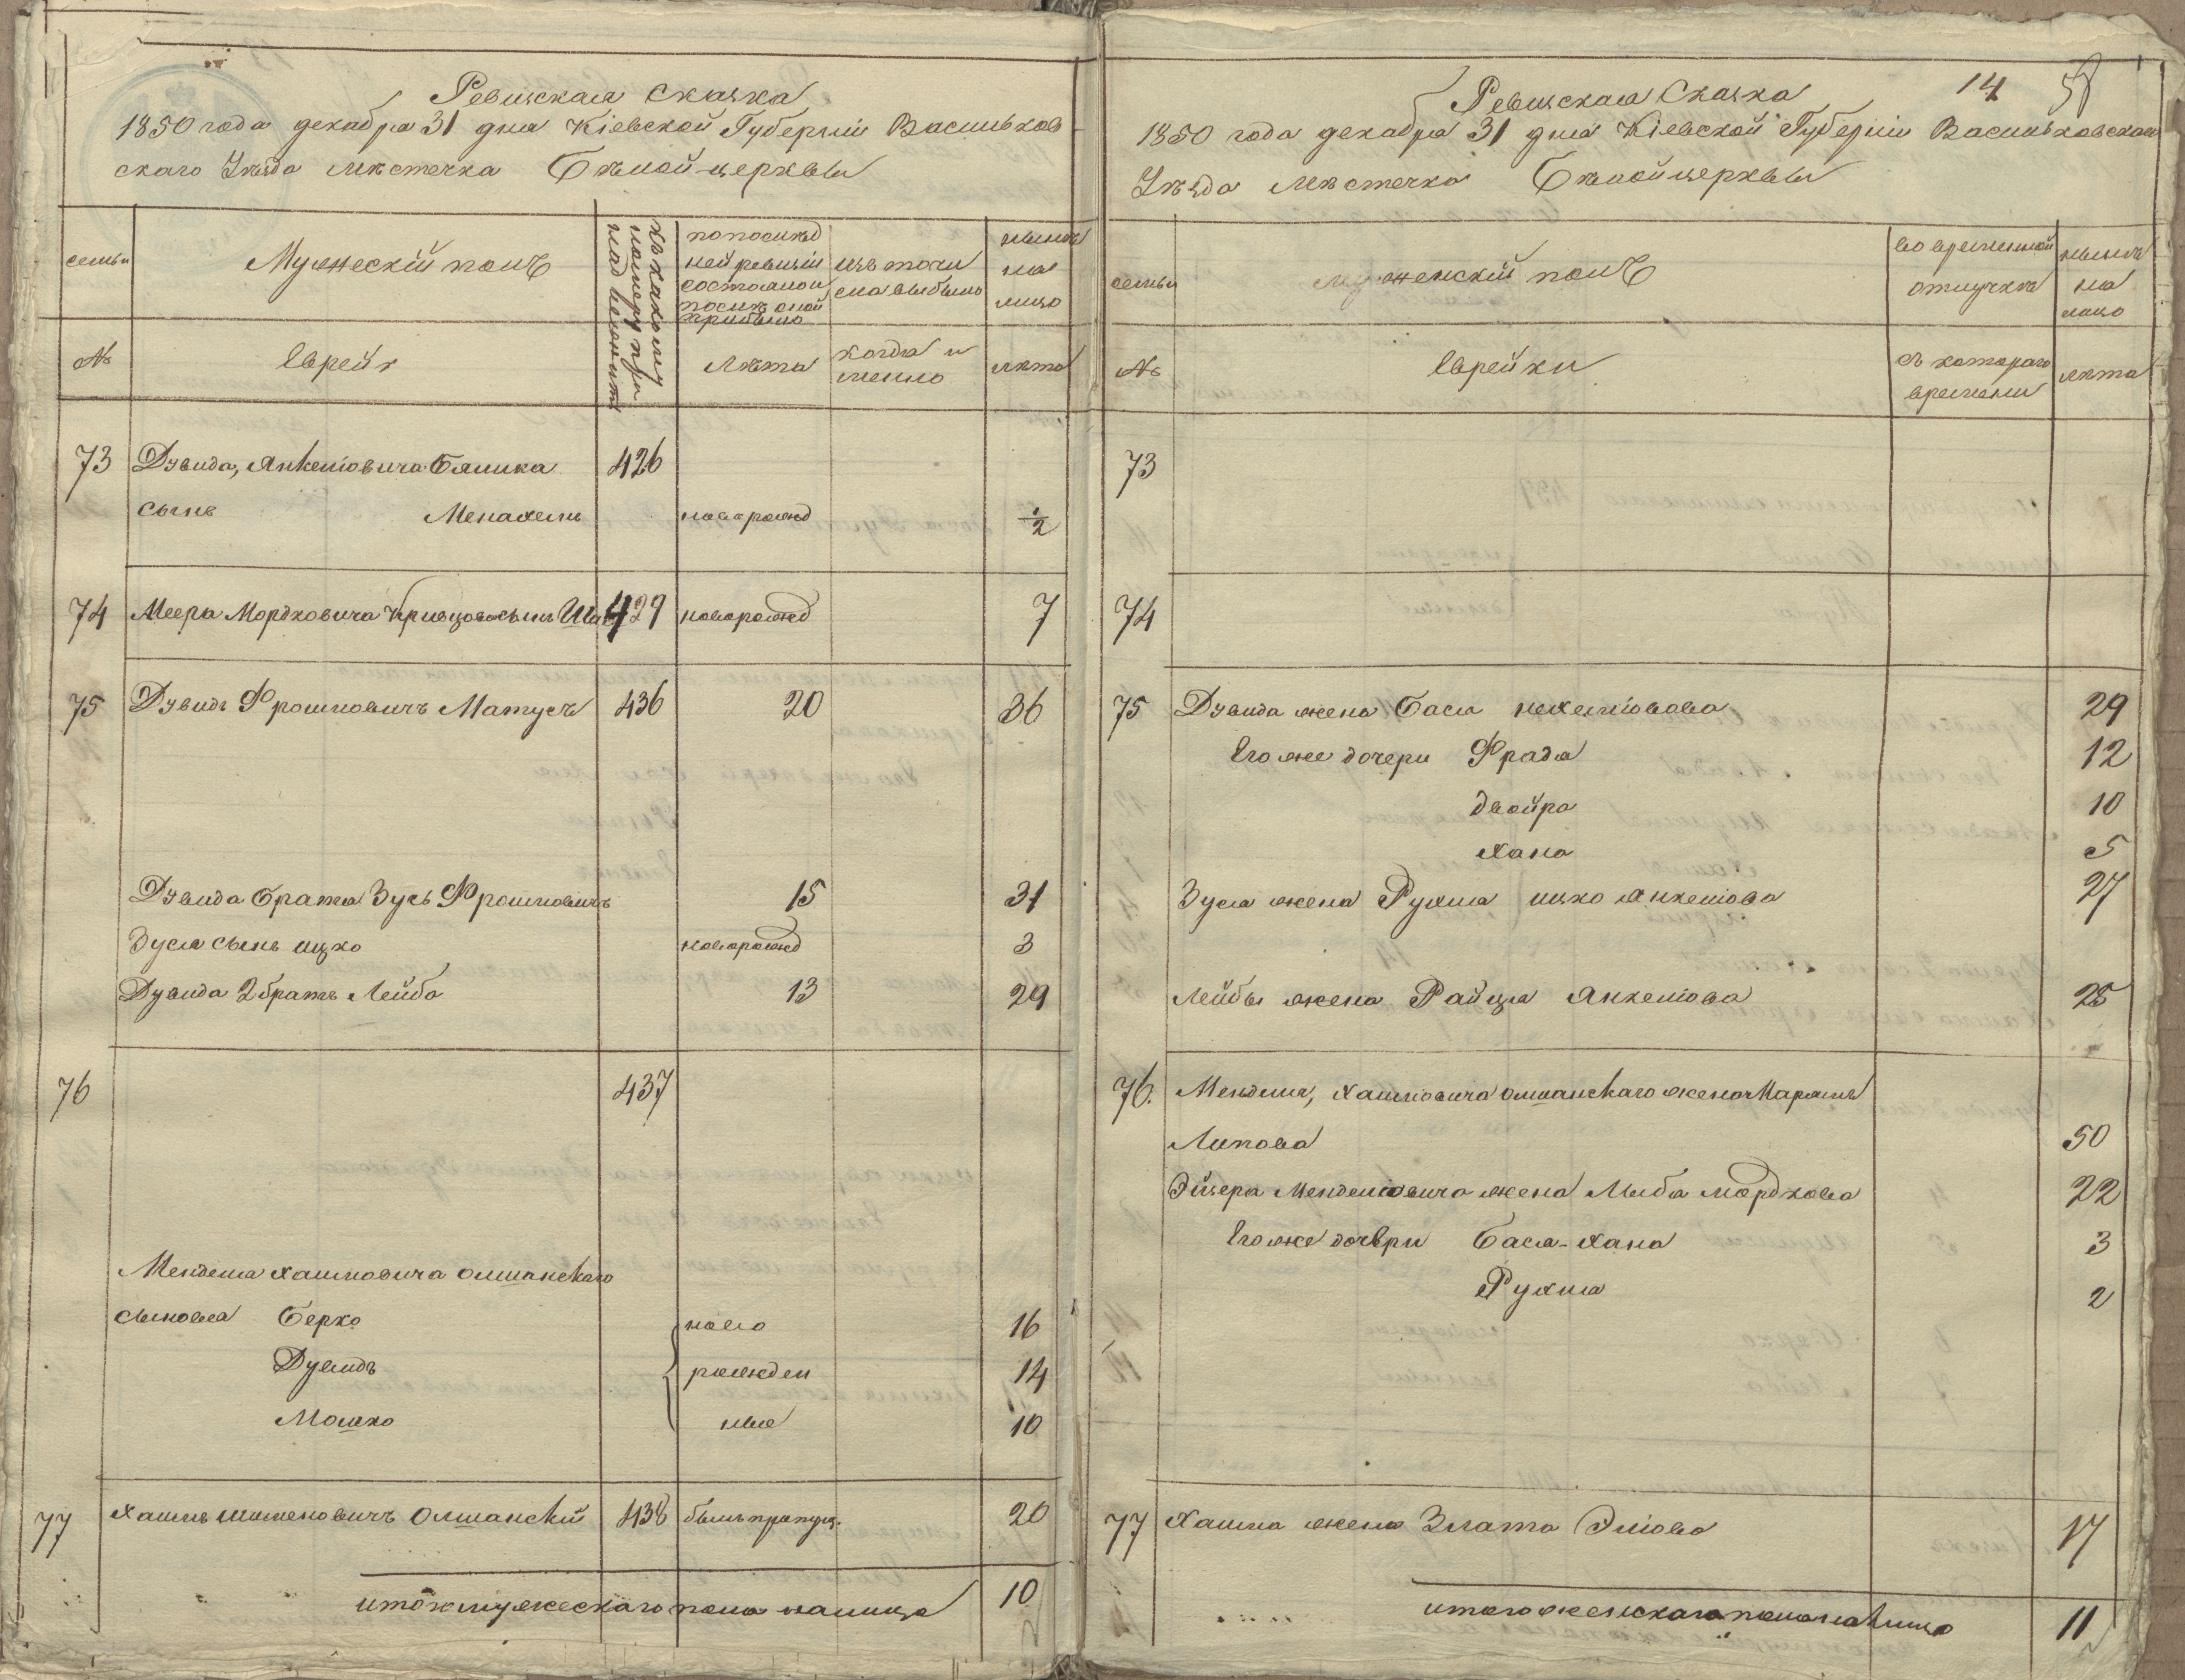 Ревизская Сказка
1850 года декабря 31 дня Кіевской Губерніи Васильков-
скаго Уѣзда мѣстечка Бѣлой-церквы
семьи
Мужескій полъ
къ какому
номеру при
надлежитъ
по послѣд
ней ревизіи
состояло и
послѣ оной
прибыло
изъ того чи
сла выбыло
нынѣ
на
лицо
№
Еврей
Лѣта
когда и
менно
лѣта
73 Дувида, Янкеліовича Бялика 426
сынъ Менахемъ новорожд ½
74 Меера Мордковича Кривцова сынъ 429 новорожд 7
75 Дувидъ Фроимовичъ Матусъ 436 20 36
Дувида брата Зусь Фроимовичъ 15 31
Зуся сынъ ицко новорожд 3
Дувида 2 братъ Лейба 13 29
76 437
Мендела Хаимовича Олшанскаго
сыновья Берко ново 16
Дувидъ рожден 14
Мошко ные 10
77 Хаимъ Шименовичъ Олшанскій 438 былъ пропущ. 20
итого мужескаго пола налицо 10
14
Ревизская Сказка
1850 года декабря 31 дня Кіевской Губерніи Васильковскаго
Уѣзда Мѣстечка Бѣлойцерквы
семьи
женскій полъ
во временной
отлучкѣ
нынѣ
на
лицо
№
Еврейки
съ котораго
времени
лѣта
73
74
75 Дувида жена Бася нехеміовова 29
Его же дочери Фрада 12
Двойра 10
Хана 5
Зуся жена Рухля ицко Янкеліова 27
Лейбы жена Райця Янкеліова 25
76. Менделя, Хаимовича Олшанскаго жена Марьямъ
Липова 50
Эйзера Менделіовича жена Либа мордкова 22
Его же дочери Бася-Хана 3
Рухля 2
77 Хаима жена Злата Эліова 17
итого женскаго пола налицо 11